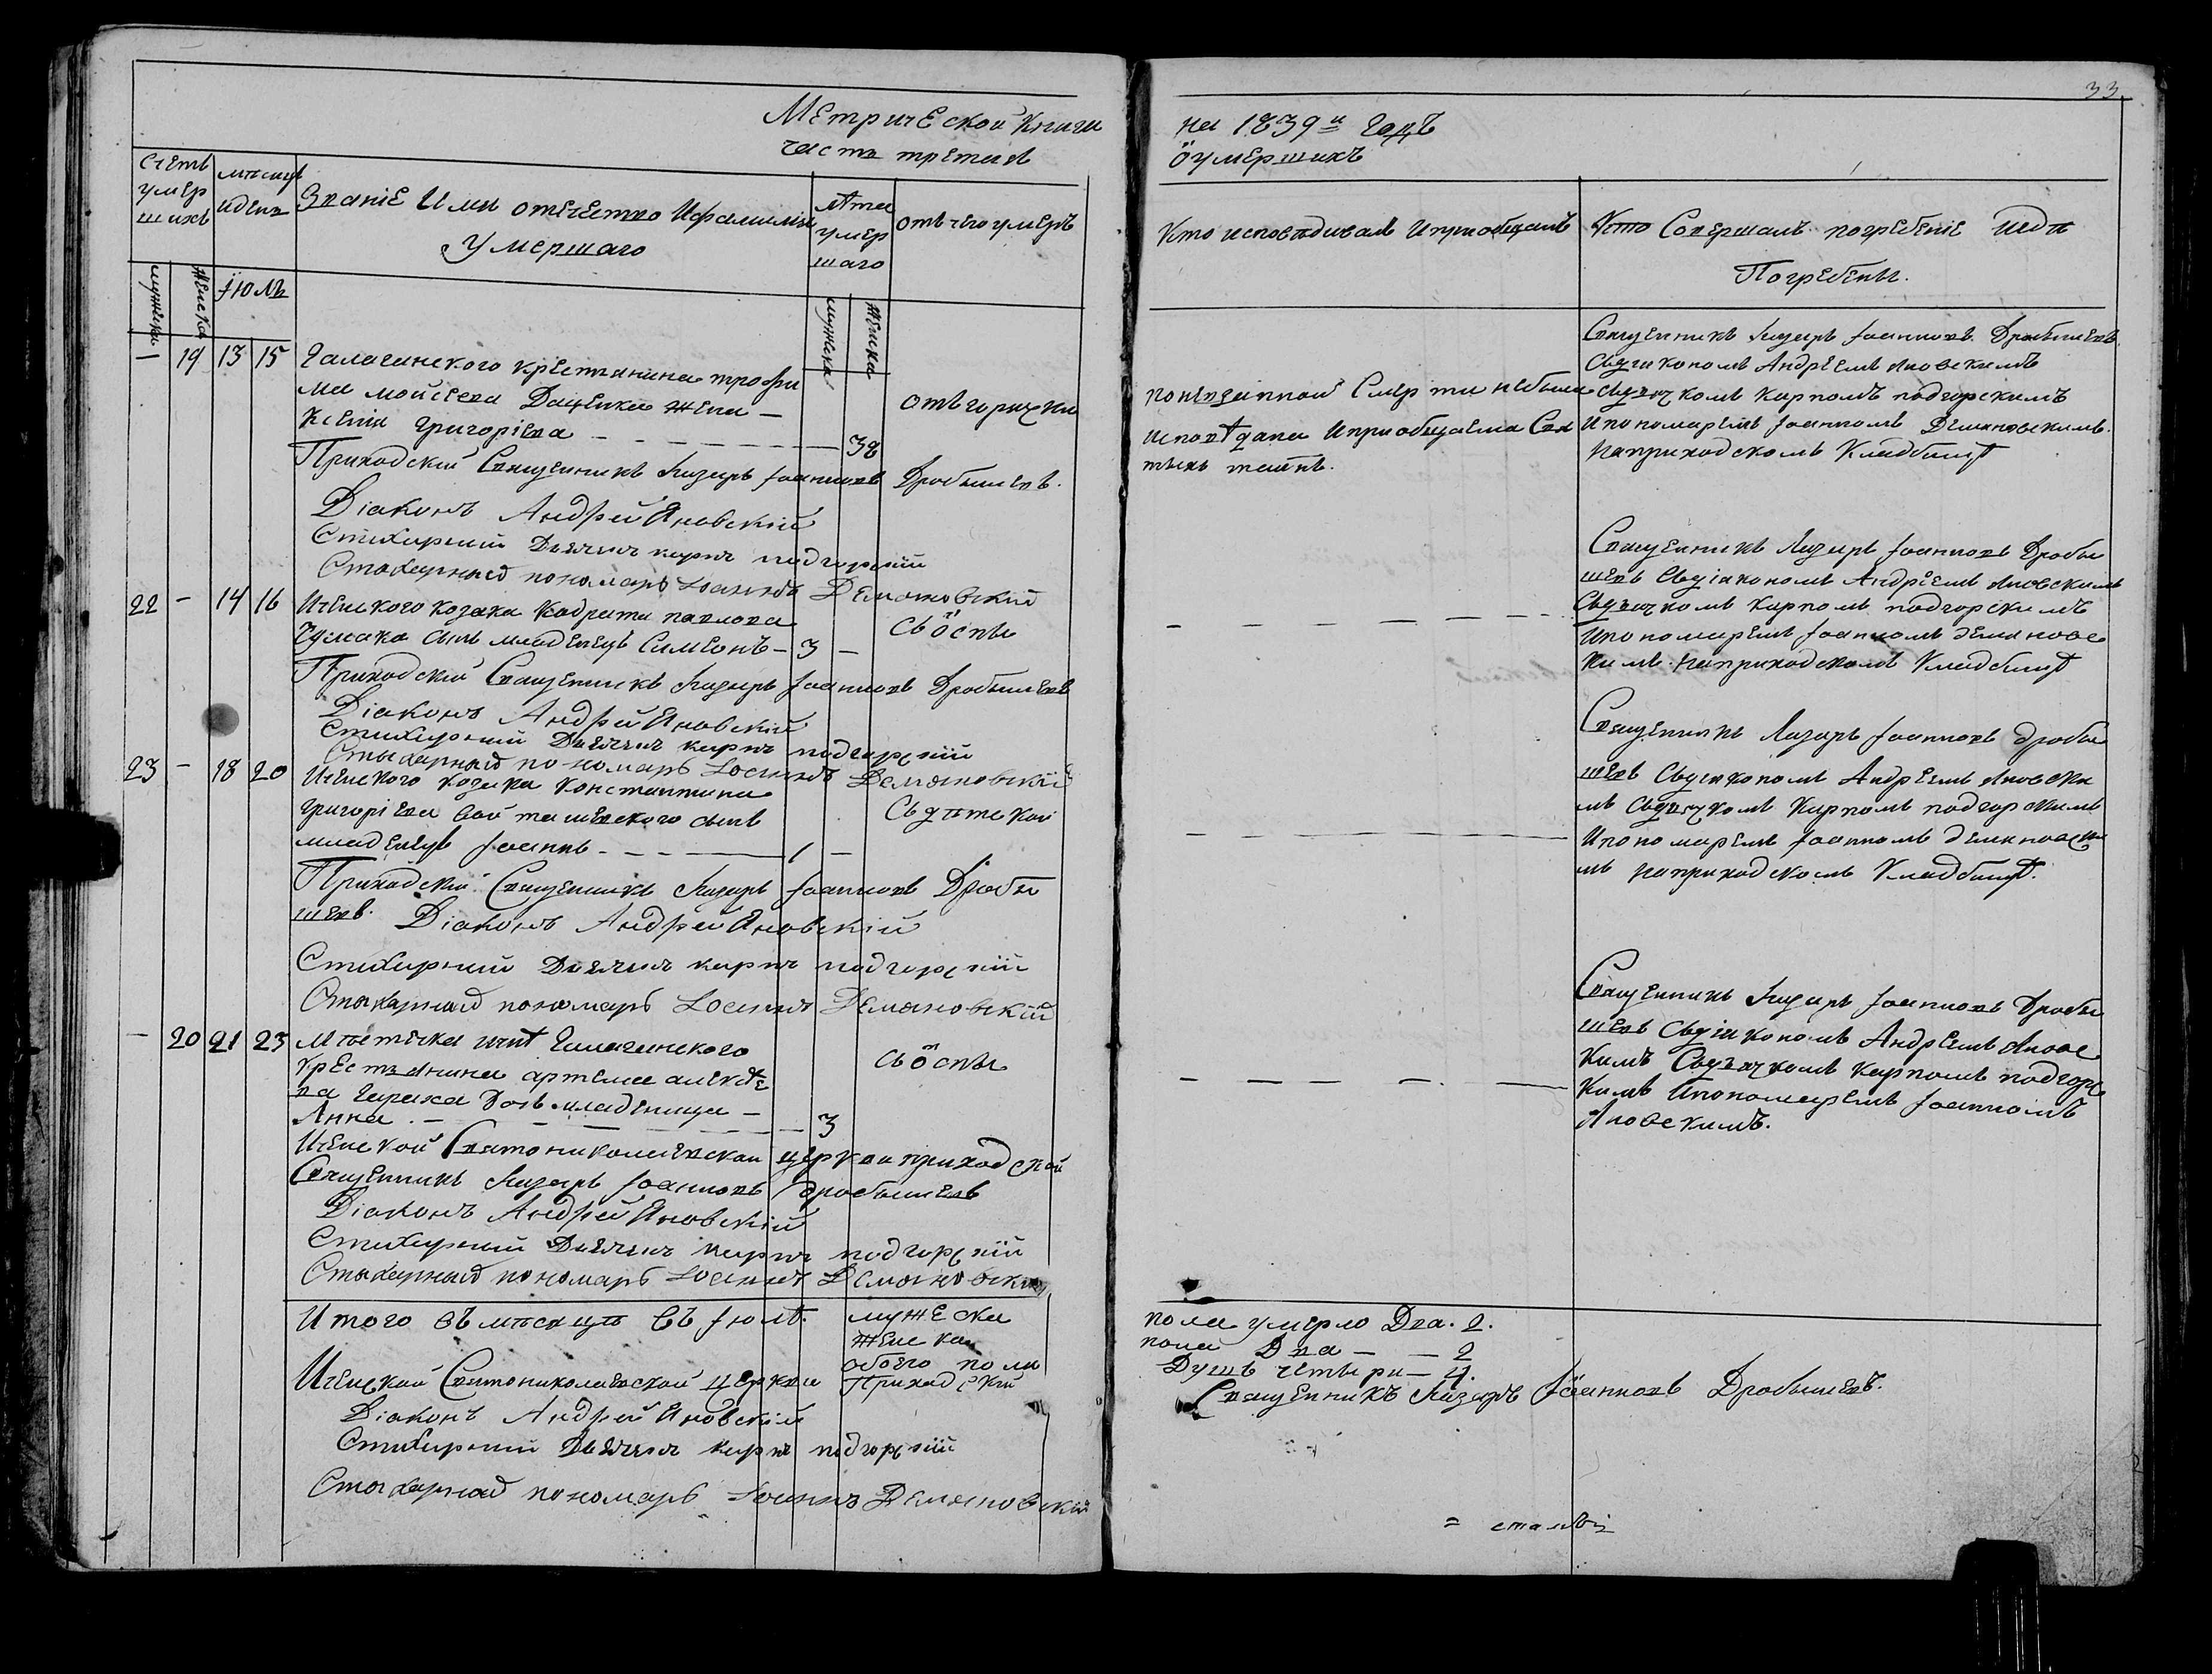 33
Метрической книги
часть третия
на 1839й годъ
о умершихъ
Счетъ умер шихъ
мѣсяцъ иденъ
Званіе Имя отечество Ифамилия
Умершаго
лѣта умер шаго
отъ чего умеръ
Кто исповѣдывалъ Ипріобщалъ
Кто Совершалъ погребеніе Игдѣ
Погребены.
мужеска
женска
Іюль
мужеска
женска
— 19 13 15
Галаганского крестянина трофи
ма мойсеева Даценка Жена —
Ксенія григоріева — 38
отъ горячки
понезапной Смерти небыла
исповѣдана Ипріобщаема Свя
тыхъ таинъ.
Священникъ Лазарь Іоанновъ Дробышевъ
Съдіякономъ Андреемъ Яновскимъ
Съдьячкомъ Карпомъ подгорскимъ
Ипономаремъ Іоанномъ Демяновскимъ.
Наприходскомъ Кладбищѣ
Приходскій Священникъ Лазарь Іоанновъ Дробышевъ.
Діаконъ Андрей Яновскій
Стихарний Дьячокъ карпъ подгорскій
Стихарный пономарь Іоаннъ Демяновскій
22 — 14 16
Иченского козака Кодрата павлова
Чумака сынъ младенецъ Симеонъ — 3 —
Съ оспы
Священникъ Лазарь Іоанновъ Дробы
шевъ Съдіякономъ Андреемъ Яновскимъ
Съдьячкомъ Карпомъ подгорскимъ
Ипономаремъ Іоанномъ демяновс
кимъ. наприходскомъ Кладбищѣ
Приходскій Священникъ Лазарь Іоанновъ Дробышевъ
Діаконъ Андрей Яновскій
Стихарний Дьячокъ карпъ подгорскій
Стихарный пономарь Іоаннъ Демяновскій
23 — 18 20
Иченского козака Константина
григоріева сынъ
младенецъ Іоаннъ — 1 —
Съдѣтской
Священникъ Лазарь Іоанновъ дробы
шевъ Съдіякономъ Андреемъ Яновски
мъ Съдьячкомъ Карпомъ подгорскимъ
Ипономаремъ Іоанномъ демяновски
мъ наприходскомъ Кладбищѣ.
Приходскій Священникъ Лазарь Іоанновъ Дробы
шевъ. Діаконъ Андрей Яновскій
Стихарний Дьячокъ карпъ подгорскій
Стихарный пономарь Іоаннъ Демяновскій
— 20 21 23
Мѣстечка ичнѣ Галаганского
крестьянина артема алексѣе
ва Дочь младеница —
Анна. — 3
Съ оспы
Священникъ Лазарь Іоанновъ Дробы
шевъ Съдіякономъ Андреемъ Яновс
кимъ Съдьячкомъ Карпомъ подгорс
кимъ Ипономаремъ Іоанномъ
Яновскимъ.
Иченской Святониколаевской церкви приходской
Священникъ Лазарь Іоанновъ дробышевъ
Діаконъ Андрей Яновскій
Стихарний Дьячокъ карпъ подгорскій
Стихарный пономарь Іоаннъ Демяновскій
Итого въ мѣсяцѣ Въ Іюлѣ. мужеска пола умерло Два. 2.
Женска пола Два — — 2
обоего пола Душъ четыри — 4.
Иченской Святониколаевской церкви Приходскій Священникъ Лазарь Іоанновъ Дробышевъ.
Діаконъ Андрей Яновскій
Стихарний Дьячокъ карпъ подгорскій
Стихарный пономарь Іоаннъ Демяновскій